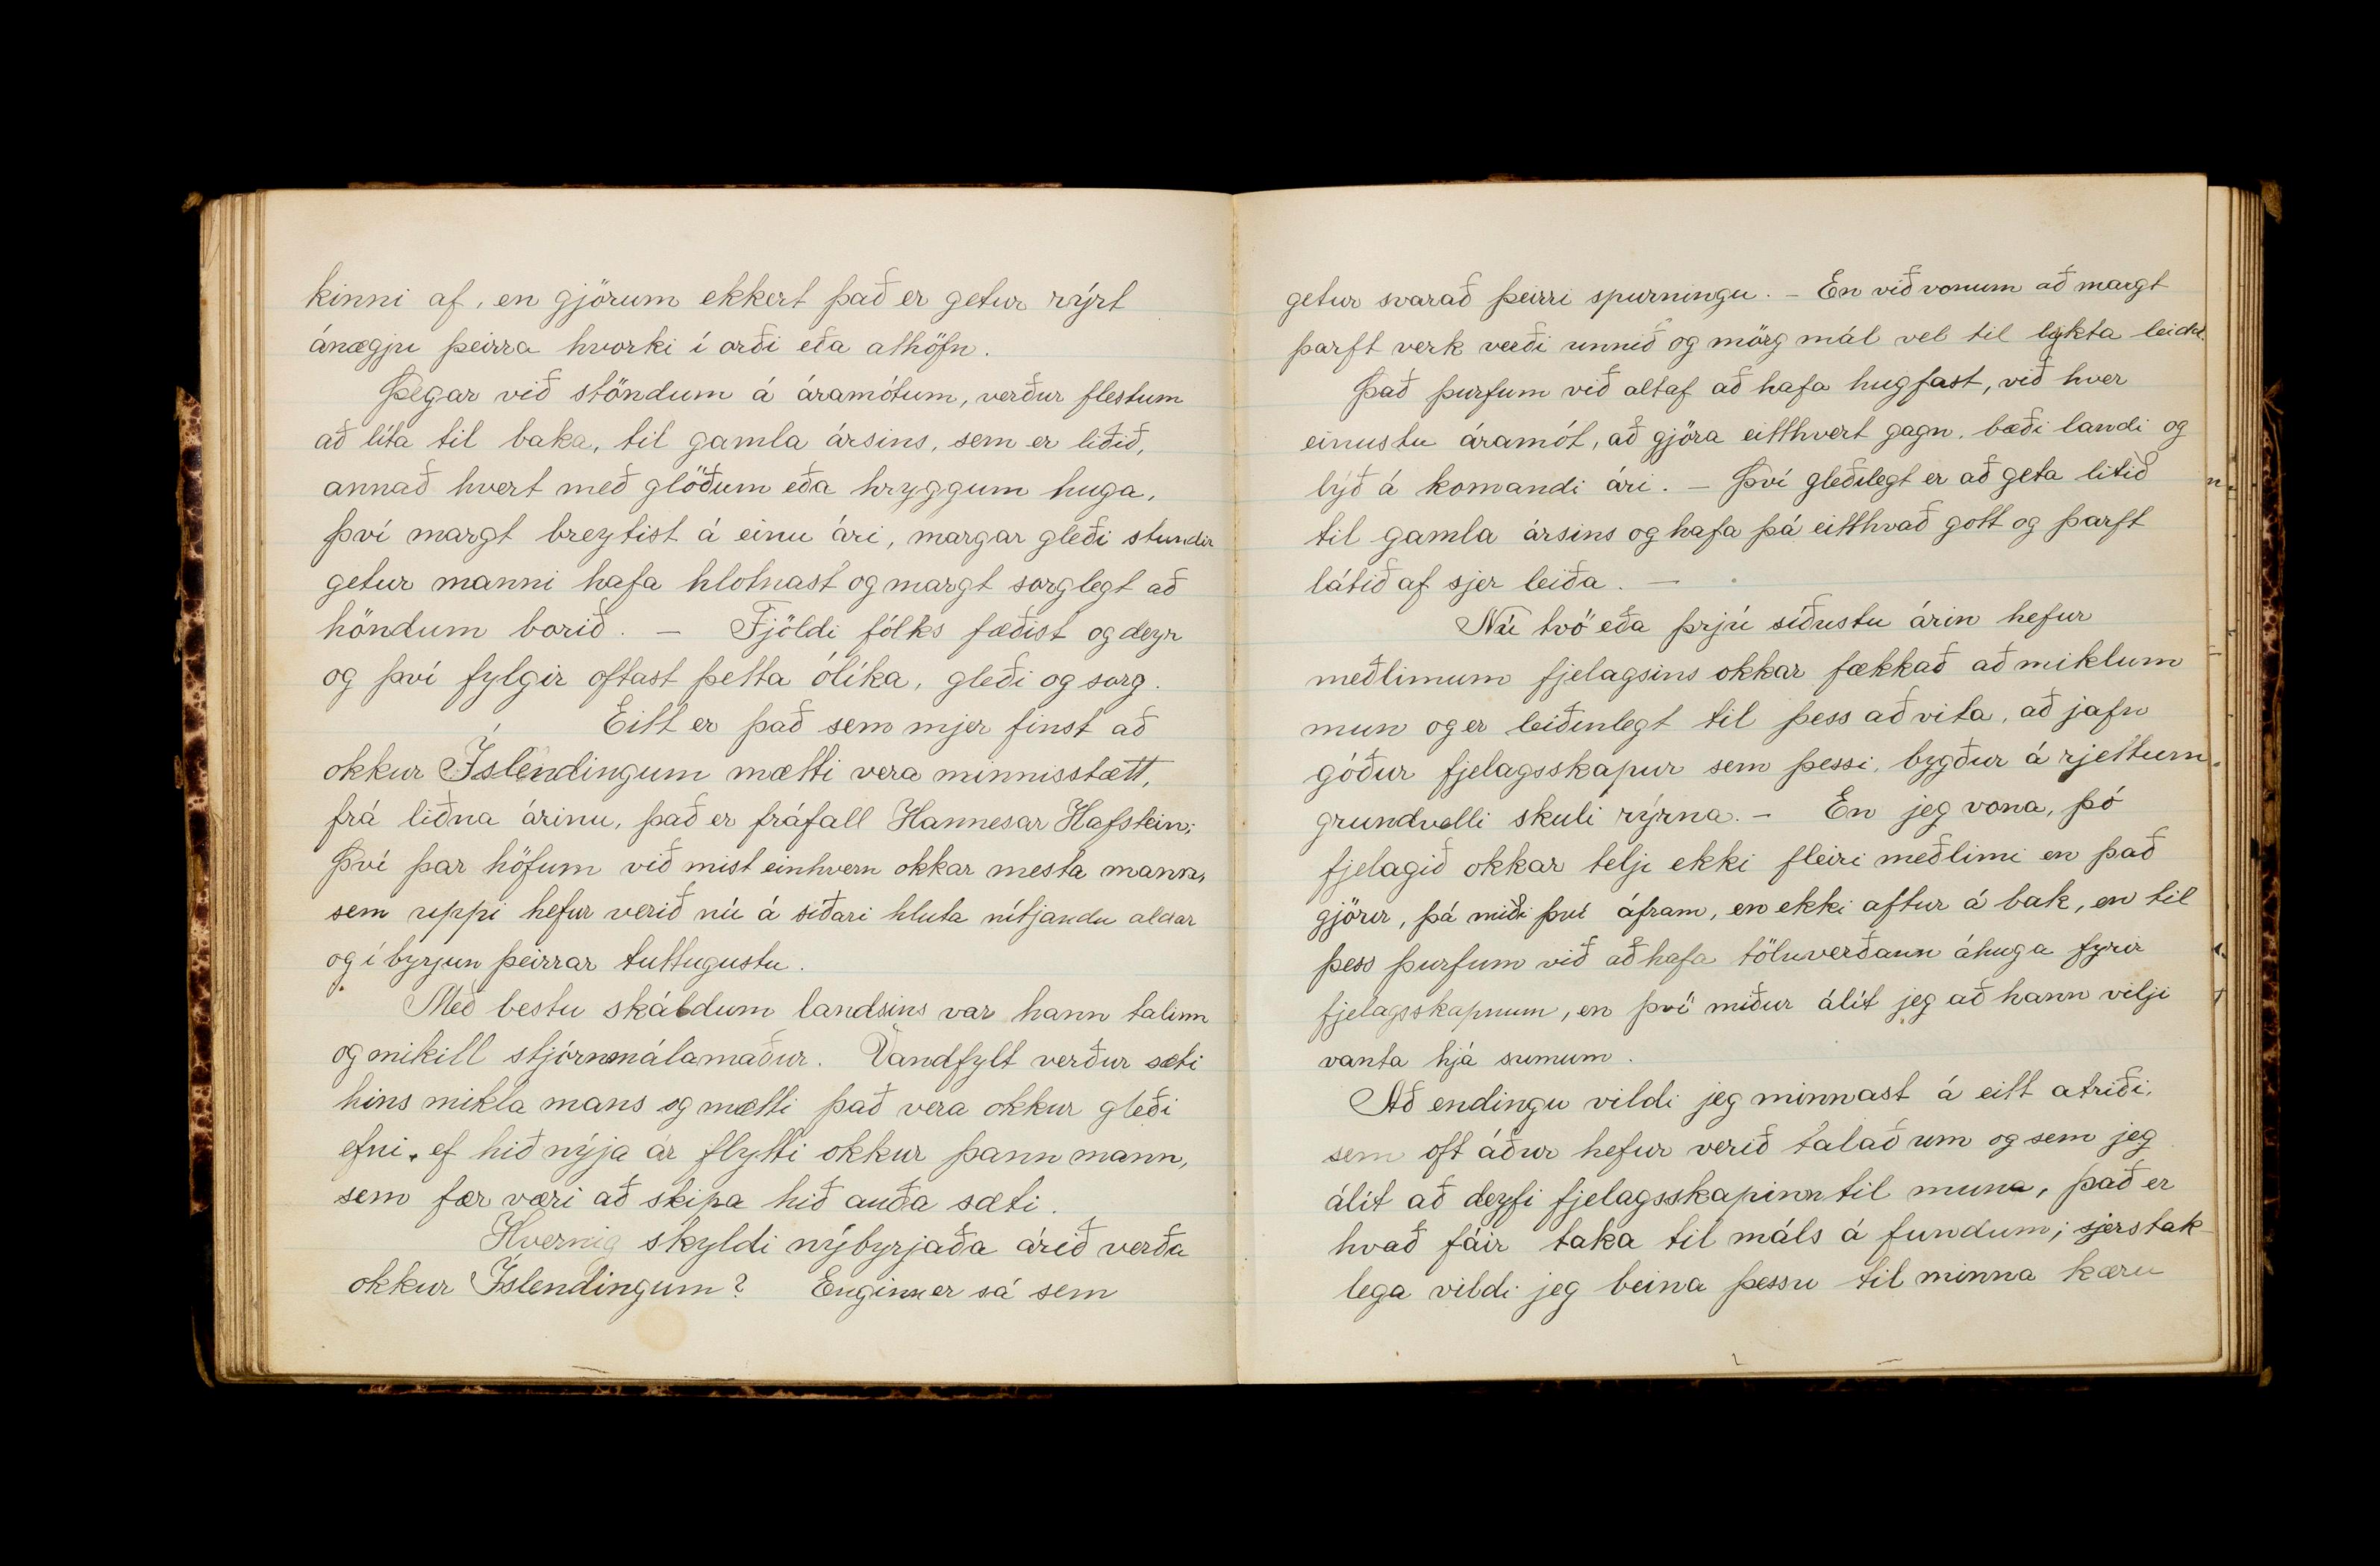 kinni af, en gjörum ekkert það er getur rýrt
ánægju þeirra hvorki í orði eða athöfn.
Þegar við stöndum á áramótum, verður flestum
að líta til baka, til gamla ársins, sem er liðið,
annað hvert með glöðum eða hryggum huga,
því margt breytist á einu ári, margar gleði stundir
getur manni hafa hlotnast og margt sorglegt að
höndum borið. — Fjöldi fólks fæðist og deyr
og því fylgir oftast þetta ólíka, gleði og sorg.
Eitt er það sem mjer finst að
okkur Íslendingum mætti vera minnisstætt,
frá liðna árinu, það er fráfall Hannesar Hafstein;
Því þar höfum við mist einhvern okkar mesta mann,
sem uppi hefur verið nú á síðari hluta nítjandu aldar
og í byrjun þeirrar tuttugustu.
Með bestu skáldum landsins var hann talinn
og mikill stjórnmálamaður. Vandfylt verður sæti
hins mikla mans og mætti það vera okkur gleði
efni, ef hið nýja ár flytti okkur þann mann,
sem fær væri að skipa hið auða sæti.
Hvernig skyldi nýbyrjaða árið verða
okkur Íslendingum? Enginn er sá sem
getur svarað þeirri spurningu. – En við vonum að margt
þarft verk verði unnið og mörg mál vel til lykta leidd.
Það þurfum við altaf að hafa hugfast, við hver
einustu áramót, að gjöra eitthvert gagn, bæði landi og
lýð á komandi ári. – Því gleðilegt er að geta litið
til gamla ársins og hafa þá eitthvað gott og þarft
látið af sjer leiða. —
Nú tvö eða þrjú síðustu árin hefur
meðlimum fjelagsins okkar fækkað að miklum
mun og er leiðinlegt til þess að vita, að jafn
góður fjelagsskapur sem þessi, bygður á rjettum
grundvelli skuli rýrna. – En jeg vona, þó
fjelagið okkar telji ekki fleiri meðlimi en það
gjörir, þá miði því áfram, en ekki aftur á bak, en til
þess þurfum við að hafa töluverðann áhuga fyrir
fjelagsskapnum, en því miður álít jeg að hann vilji
vanta hjá sumum.
Að endingu vildi jeg minnast á eitt atriði,
sem oft áður hefur verið talað um og sem jeg
álít að deyfi fjelagsskapinn til muna, það er
hvað fáir taka til máls á fundum; sjerstak-
lega vildi jeg beina þessu til minna kæru